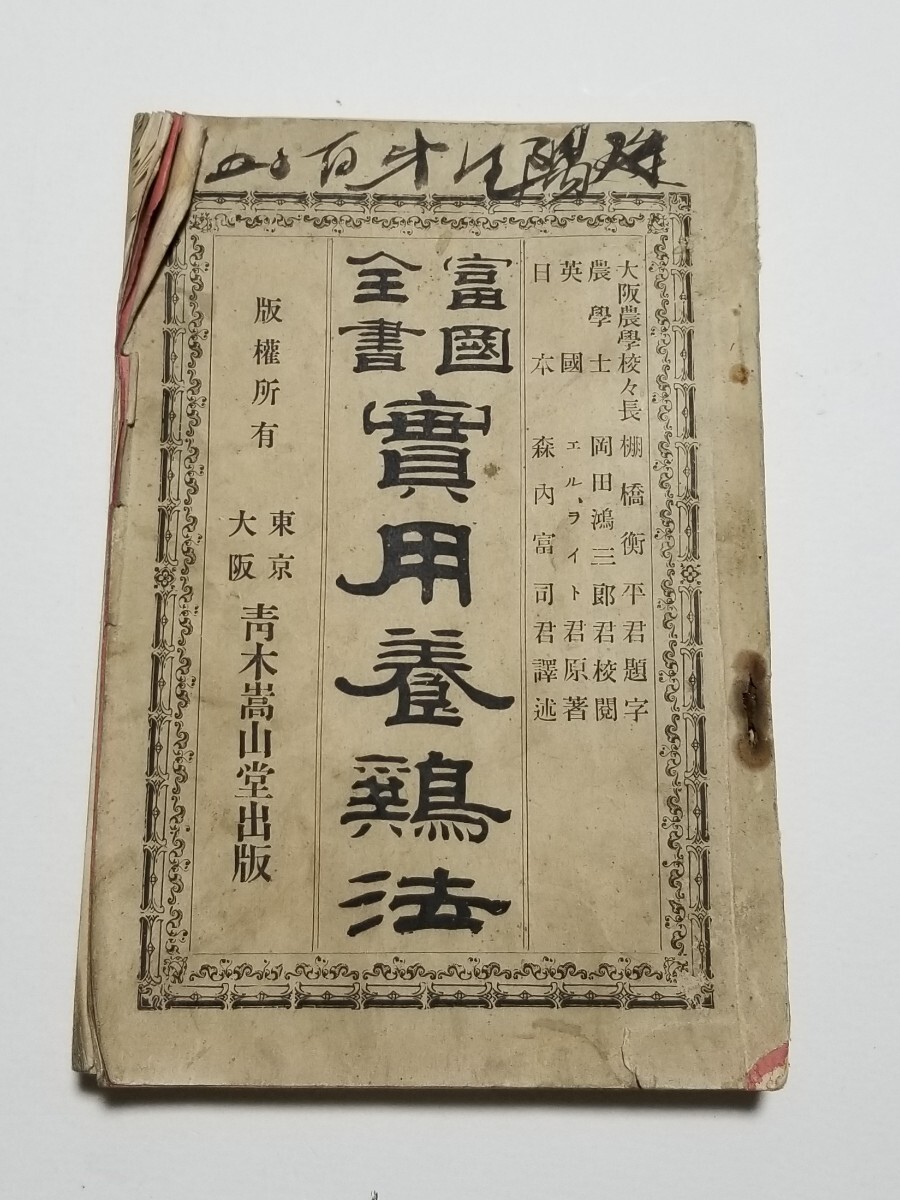 大阪農學校々長 棚橋衡平君題字
農學士 岡田鴻三郎君校閱
英國 エル、ライト君原著
日本 森內富司君譯述
富國全書
實用養鷄法
版權所有
東京
大阪
靑木嵩山堂出版